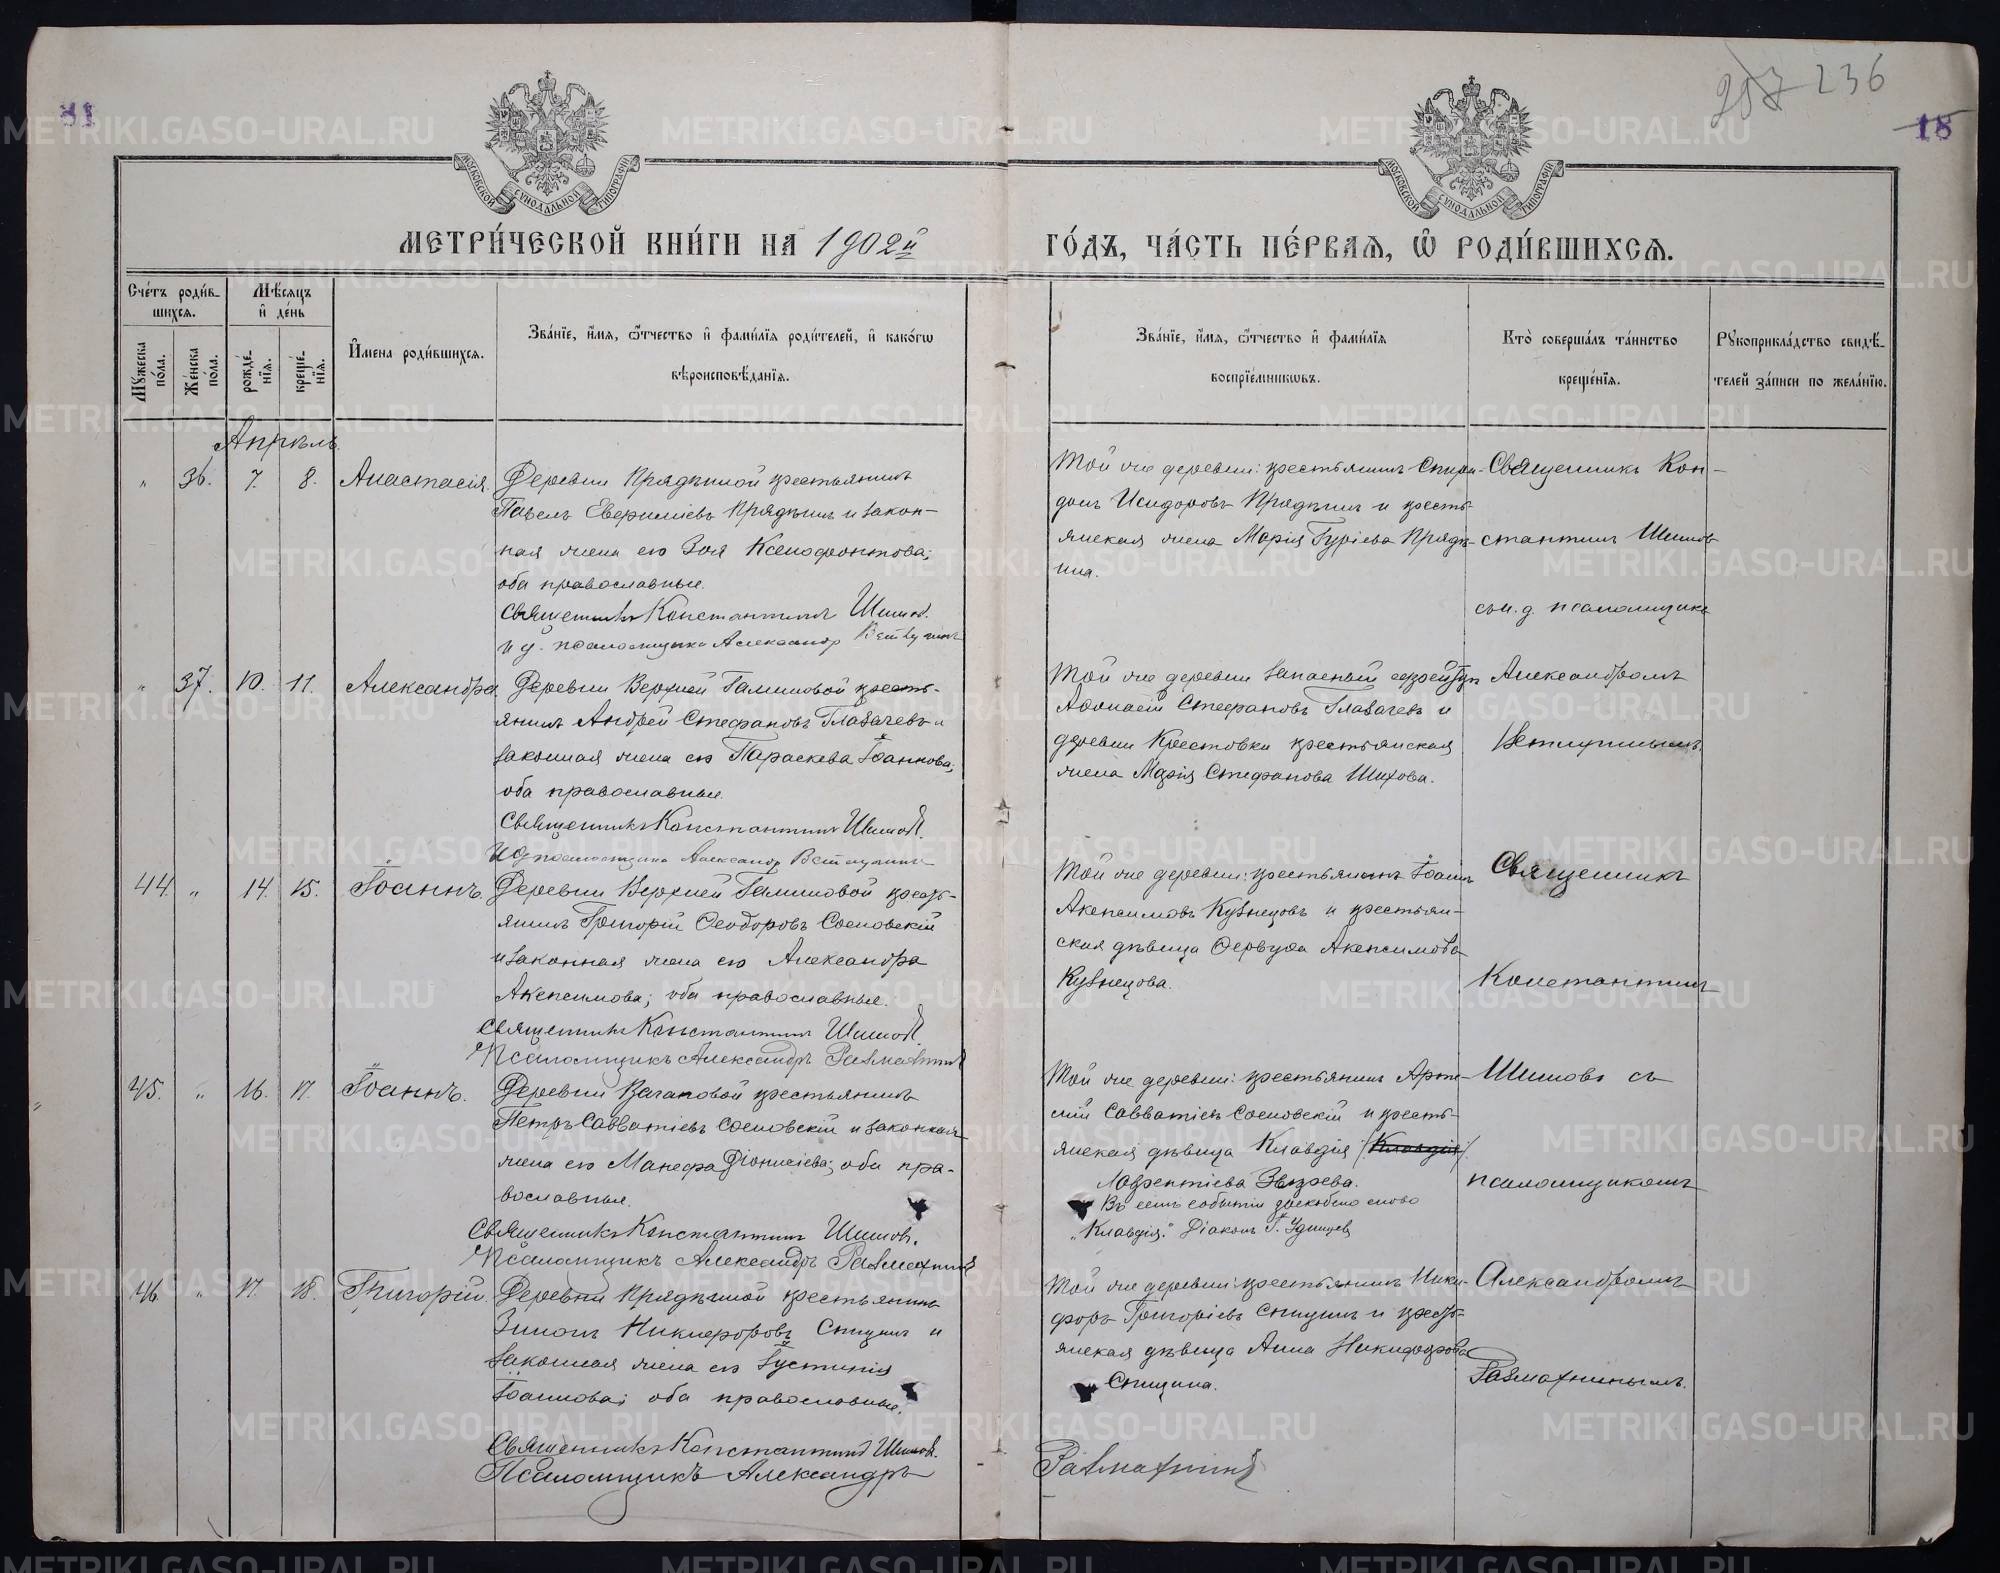 81
257 236
18
МОСКОВСКОЙ СѴНОДАЛЬНОЙ ТИПОГРАФІИ
МОСКОВСКОЙ СѴНОДАЛЬНОЙ ТИПОГРАФІИ
МЕТРИ́ЧЕСКОЙ КНИ́ГИ НА 1902й
ГО́ДЪ, ЧА́СТЬ ПЕ́РВАЯ, Ѿ РОДИ́ВШИХСЯ.
Сче́тъ роди́в-
шихся.
Мѣ́сяцъ
и҆ де́нь
Мꙋ́жеска по́ла.
Же́нска по́ла.
рожде́-нїя.
креще́-нїя.
И҆мена роди́вшихся.
Зва́нїе, и҆́мя, ѻ҆́тчество и҆ фами́лїя роди́телей, и҆ како́гѡ
вѣроисповѣ́данїя.
Зва́нїе, и҆́мя, ѻ҆́тчество и҆ фами́лїя
воспрїе́мникѡвъ.
Кто̀ соверша́лъ та́инство
креще́нїя.
Рꙋкоприкла́дство свидѣ́-
телей за́писи по жела́нїю.
Апрѣль.
" 36. 7. 8. Анастасія.
Деревни Прядѣиной крестьянинъ
Павелъ Евѳиміевъ Прядѣинъ и закон-
ная жена его Зоя Ксенофонтова;
оба православные.
Священникъ Константинъ Шишовъ.
И д. псаломщика Александръ Ветлугинъ
Той же деревни: крестьянинъ Спири-
донъ Исидоровъ Прядѣинъ и кресть-
янская жена Марія Гуріева Прядѣ-
ина.
Священникъ Кон-
стантинъ Шишовъ
съ и. д. псаломщика
" 37. 10. 11. Александра.
Деревни Верхней Галишовой кресть-
янинъ Андрей Стефановъ Главачевъ и
законная жена его Параскева Іоаннова;
оба православные.
Священникъ Константинъ Шишовъ.
И д псаломщика Александръ Ветлугинъ
Той же деревни запасный
Стефановъ Главачевъ и
деревни Крестовки крестьянская
жена Марія Стефанова Шихова.
Александромъ
Ветлугинымъ.
44. " 14. 15. Іоаннъ.
Деревни Верхней Галишовой кресть-
янинъ Григорій Ѳеодоровъ Сосновскій
и законная жена его Александра
Акепсимова; оба православные.
Священникъ Константинъ Шишовъ.
Псаломщикъ Александръ Размахнинъ
Той же деревни: крестьянинъ Іоаннъ
Акепсимовъ Кузнецовъ и крестьян-
ская дѣвица Ѳервуѳа Акепсимова
Кузнецова.
Священникъ
Константинъ
45. " 16. 17. Іоаннъ.
Деревни Вагановой крестьянинъ
Петръ Савватіевъ Сосновскій и законная
жена его Манефа Діонисіева; оба пра-
вославные.
Священникъ Константинъ Шишовъ.
Псаломщикъ Александръ Размахнинъ
Той же деревни: крестьянинъ Арте-
мій Савватіевъ Сосновскій и кресть-
янская дѣвица Клавдія (Клавдія)
Лаврентіева Звѣрева.
Въ семъ событіи заскоблено слово
„Клавдія." Діаконъ Г. Удинцевъ
Шишовъ съ
псаломщикомъ
46. " 17. 18. Григорій.
Деревни Прядѣиной крестьянинъ
Зинонъ Никифоровъ Спицинъ и
законная жена его Іустинія
Іоаннова; оба православные.
Священникъ Константинъ Шишовъ.
Псаломщикъ Александръ
Той же деревни: крестьянинъ Ники-
форъ Григоріевъ Спицинъ и кресть-
янская дѣвица Анна Никифорова
Спицина.
Размахнинъ
Александромъ
Размахнинымъ.
METRIKI.GASO-URAL.RU